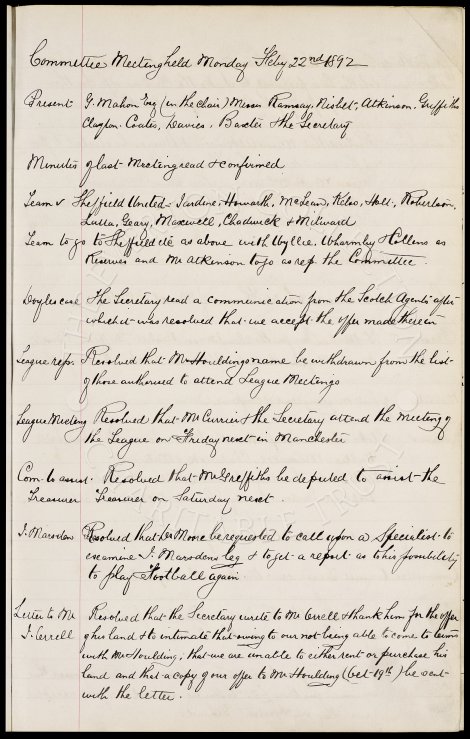 Committee Meeting held Monday Feby 22nd 1892
Present G. Mahon Esq (in the chair) Messrs Ramsay, Nisbet, Atkinson, Griffiths
Clayton, Coates, Davies, Baxter & the Secretary
Minutes of last Meeting read & confirmed
Team v Sheffield United. Jardine, Howarth, McLean, Kelso, Holt, Robertson,
Latta, Geary, Maxwell, Chadwick & Milward
Team to go to Sheffield etc as above with Wyllie, Wharmby & Collins as
Reserves and Mr Atkinson to go as rep the Committee
Doyles case The Secretary read a communication from the Scotch Agents after
which it was resolved that we accept the offer made therein
League reps. Resolved that Mr Houldings name be withdrawn from the list
of those authorised to attend League Meetings
League Meeting Resolved that Mr Currier & the Secretary attend the meeting of
the League on Friday next in Manchester
Com to assist Resolved that Mr Griffiths be deputed to assist the
Treasurer Treasurer on Saturday next.
J. Marsden Resolved that Dr Moore be requested to call upon a Specialist to
examine J. Marsdens leg & to get a report as to his possibility
to play Football again
Letter to Mr Resolved that the Secretary write to Mr Orrell & thank him for the offer
J. Orrell of his land & to intimate that owing to our not being able to come to terms
with Mr Houlding, that we are unable to either rent or purchase his
land and that a copy of our offer to Mr Houlding (Oct 19th) be sent
with the letter.